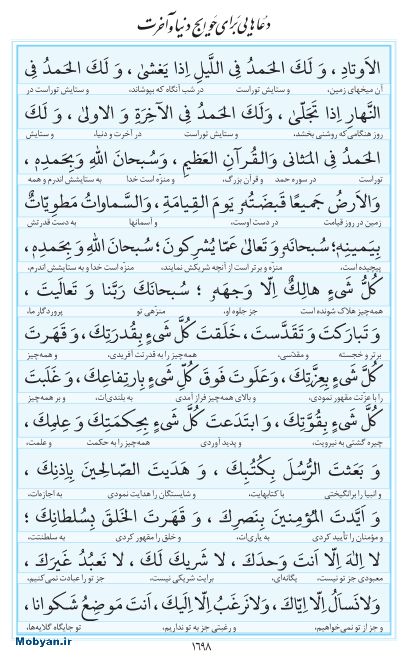 دعاهایی برای حوائج دنیا و آخرت
الاَوتادِ ، وَ لَكَ الحَمدُ فِى اللَّيلِ اِذا يَغشىٰ ، وَ لَكَ الحَمدُ فِى
آن میخهای زمین، و ستایش توراست در شب آنگاه که بپوشاند، و ستایش توراست در
النَّهارِ اِذا تَجَلّىٰ، وَلَكَ الحَمدُ فِى الآخِرَةِ وَ الاولىٰ، وَ لَكَ
روز هنگامی‌که روشنی بخشد، و ستایش توراست در آخرت و دنیا، و ستایش
الحَمدُ فِى المَثانى وَالقُرآنِ العَظيمِ ، وَسُبحانَ اللهِ وَبِحَمدِهٖ ،
توراست در سوره حمد و قرآن بزرگ، و منزّه است خدا به ستایشش اندرم و همه
وَالاَرضُ جَميعًا قَبضَتُهٗ يَومَ القِيامَةِ ، وَالسَّماواتُ مَطوِيّاتٌ
زمین در روز قیامت در دست اوست، و آسمانها به دست قدرتش
بِيَمينِهٖ؛ سُبحانَهٗ وَتَعالىٰ عَمّا يُشرِكونَ؛ سُبحانَ اللهِ وَبِحَمدِهٖ،
پیچیده است، منزّه و برتر است از آنچه شریکش نمایند، منزّه است خدا و به ستایشش اندرم،
كُلُّ شَىءٍ هالِكٌ اِلّا وَجهَهٗ ؛ سُبحانَكَ رَبَّنا وَ تَعالَيتَ ،
همه‌چیز هلاک شونده است جز جلوه او، منزهی تو پروردگار ما،
وَ تَبارَكتَ وَ تَقَدَّستَ، خَلَقتَ كُلَّ شَىءٍ بِقُدرَتِكَ، وَ قَهَرتَ
برتر و خجسته و مقدّسی، همه‌چیز را به قدرتت آفریدی، و همه‌چیز
كُلَّ شَىءٍ بِعِزَّتِكَ، وَعَلَوتَ فَوقَ كُلِّ شَىءٍ بِارتِفاعِكَ، وَ غَلَبتَ
را با عزّتت مقهور نمودی، و بالای همه‌چیز فراز آمدی به بلندی‌ات، و بر همه‌چیز
كُلَّ شَىءٍ بِقُوَّتِكَ، وَ ابتَدَعتَ كُلَّ شَىءٍ بِحِكمَتِكَ وَ عِلمِكَ،
چیره گشتی به نیرویت، و پدید آوردی همه‌چیز را به حکمت و علمت،
وَ بَعَثتَ الرُّسُلَ بِكُتُبِكَ ، وَ هَدَيتَ الصّالِحينَ بِاِذنِكَ ،
و انبیا را برانگیختی با کتابهایت، و شایستگان را هدایت نمودی به اجازه‌ات،
وَ اَيَّدتَ المُؤمِنينَ بِنَصرِكَ ، وَ قَهَرتَ الخَلقَ بِسُلطانِكَ ؛
و مؤمنان را تأیید کردی به یاری‌ات، و خلق را مقهور کردی به سلطنتت،
لا اِلٰهَ اِلّا اَنتَ وَحدَكَ ، لا شَريكَ لَكَ ، لا نَعبُدُ غَيرَكَ ،
معبودی جز تو نیست، یگانه‌ای، برایت شریکی نیست، جز تو را عبادت نمی‌کنیم،
وَلانَسأَلُ اِلّا اِيّاكَ، وَلانَرغَبُ اِلّا اِلَيكَ، اَنتَ مَوضِعُ شَكوانا ،
و جز از تو نمی‌خواهیم، و رغبتی جز به تو نداریم، تو جایگاه گلایه‌ها،
١٦٩٨
Mobyan.ir